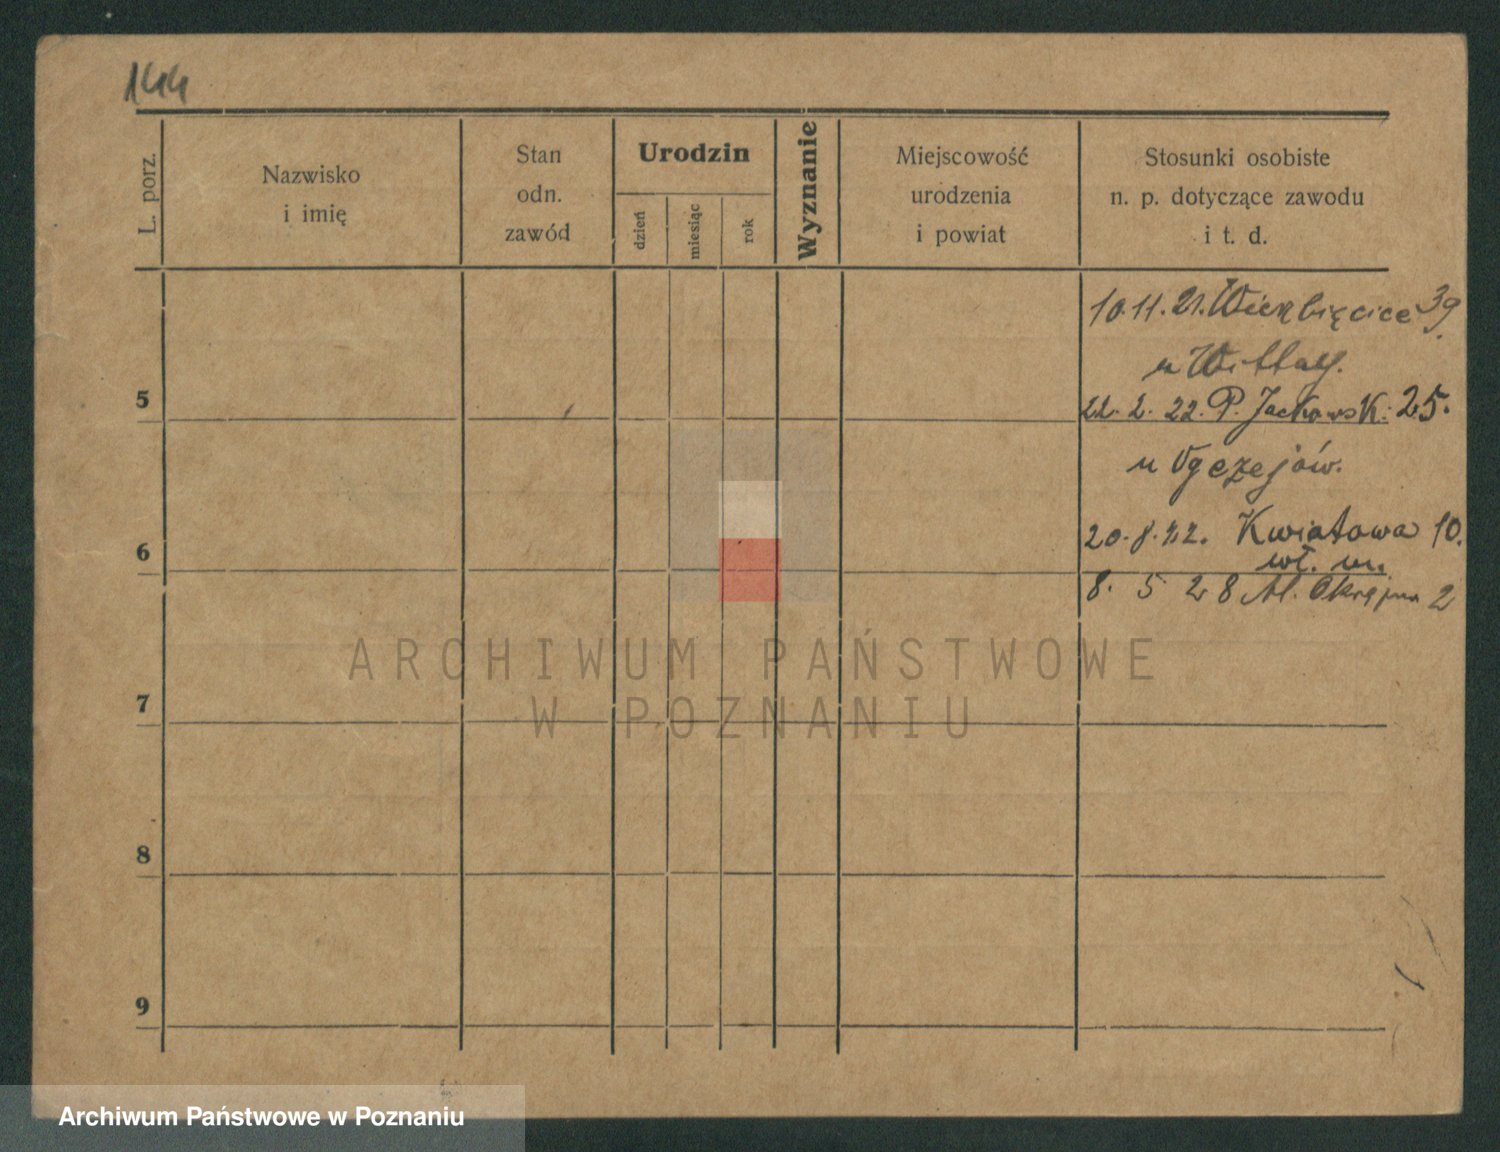 144
L. porz.
Nazwisko
i imię
Stan
odn.
zawód
Urodzin
dzień
miesiąc
rok
Wyznanie
Miejscowość
urodzenia
i powiat
Stosunki osobiste
n. p. dotyczące zawodu
i t. d.
10.11.21. Wierzbięcice 39
u
5
22. 2. 22. P. Jackowsk. 25.
u
20. 8. 22. Kwiatowa 10.
6
wł. m.
8. 5 28 Al. Okrężna 2
ARCHIWUM PAŃSTWOWE
W POZNANIU
7
8
9
Archiwum Państwowe w Poznaniu